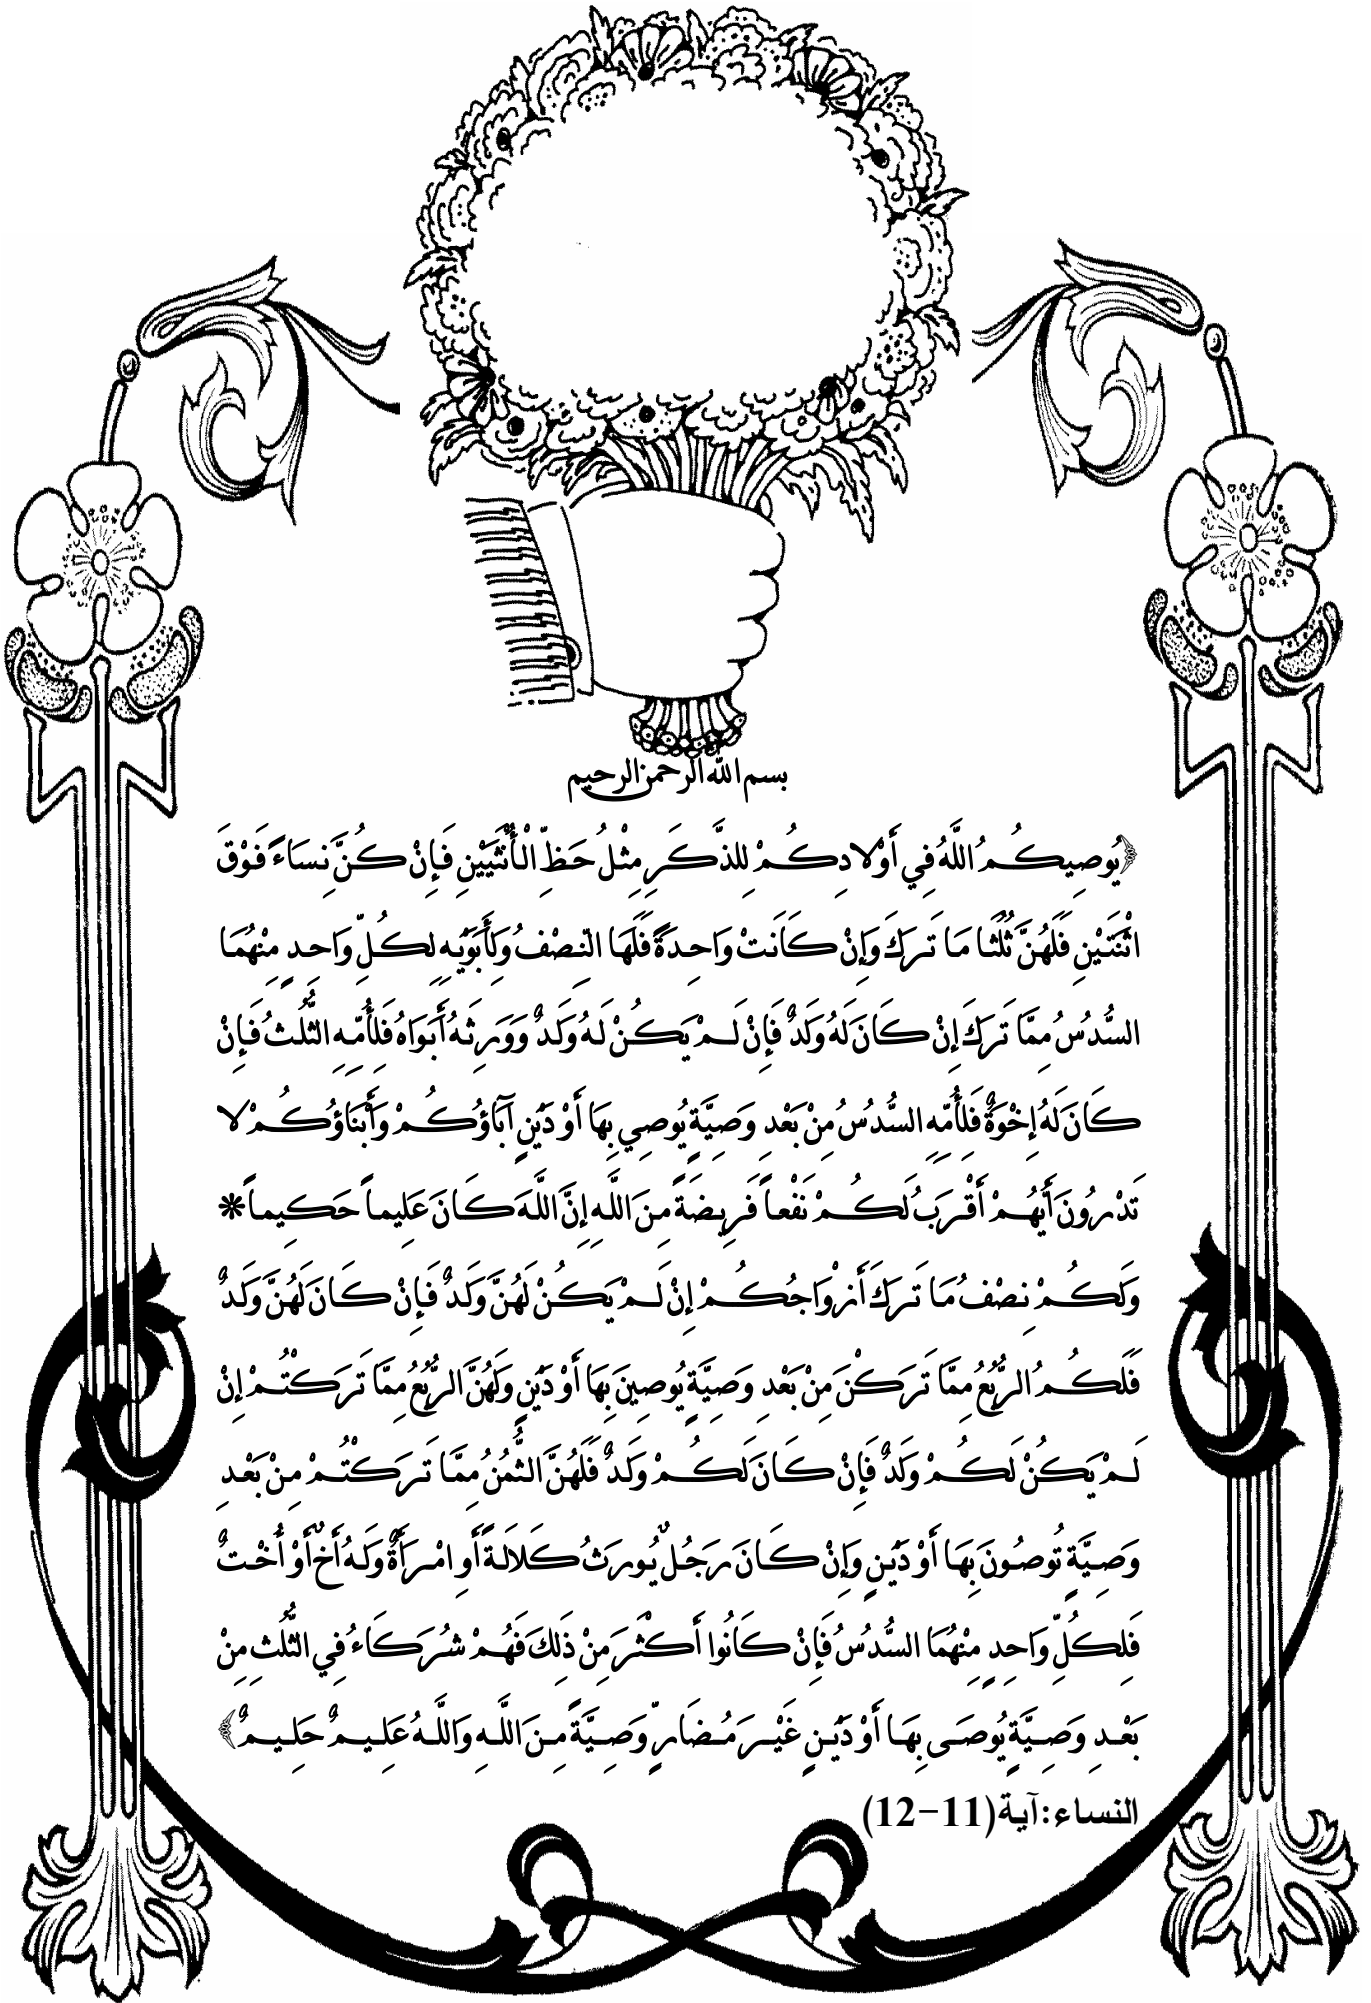 بسم الله الرحمن الرحيم
﴿يُوصِيكُمُ اللَّهُ فِي أَوْلادِكُمْ لِلذَّكَرِ مِثْلُ حَظِّ الْأُنْثَيَيْنِ فَإِنْ كُنَّ نِسَاءً فَوْقَ
اثْنَتَيْنِ فَلَهُنَّ ثُلُثَا مَا تَرَكَ وَإِنْ كَانَتْ وَاحِدَةً فَلَهَا النِّصْفُ وَلِأَبَوَيْهِ لِكُلِّ وَاحِدٍ مِنْهُمَا
السُّدُسُ مِمَّا تَرَكَ إِنْ كَانَ لَهُ وَلَدٌ فَإِنْ لَمْ يَكُنْ لَهُ وَلَدٌ وَوَرِثَهُ أَبَوَاهُ فَلِأُمِّهِ الثُّلُثُ فَإِنْ
كَانَ لَهُ إِخْوَةٌ فَلِأُمِّهِ السُّدُسُ مِنْ بَعْدِ وَصِيَّةٍ يُوصِي بِهَا أَوْ دَيْنٍ آبَاؤُكُمْ وَأَبْنَاؤُكُمْ لا
تَدْرُونَ أَيُّهُمْ أَقْرَبُ لَكُمْ نَفْعاً فَرِيضَةً مِنَ اللَّهِ إِنَّ اللَّهَ كَانَ عَلِيماً حَكِيماً *
وَلَكُمْ نِصْفُ مَا تَرَكَ أَزْوَاجُكُمْ إِنْ لَمْ يَكُنْ لَهُنَّ وَلَدٌ فَإِنْ كَانَ لَهُنَّ وَلَدٌ
فَلَكُمُ الرُّبُعُ مِمَّا تَرَكْنَ مِنْ بَعْدِ وَصِيَّةٍ يُوصِينَ بِهَا أَوْ دَيْنٍ وَلَهُنَّ الرُّبُعُ مِمَّا تَرَكْتُمْ إِنْ
لَمْ يَكُنْ لَكُمْ وَلَدٌ فَإِنْ كَانَ لَكُمْ وَلَدٌ فَلَهُنَّ الثُّمُنُ مِمَّا تَرَكْتُمْ مِنْ بَعْدِ
وَصِيَّةٍ تُوصُونَ بِهَا أَوْ دَيْنٍ وَإِنْ كَانَ رَجُلٌ يُورَثُ كَلَالَةً أَوِ امْرَأَةٌ وَلَهُ أَخٌ أَوْ أُخْتٌ
فَلِكُلِّ وَاحِدٍ مِنْهُمَا السُّدُسُ فَإِنْ كَانُوا أَكْثَرَ مِنْ ذَلِكَ فَهُمْ شُرَكَاءُ فِي الثُّلُثِ مِنْ
بَعْدِ وَصِيَّةٍ يُوصَى بِهَا أَوْ دَيْنٍ غَيْرَ مُضَارٍّ وَصِيَّةً مِنَ اللَّهِ وَاللَّهُ عَلِيمٌ حَلِيمٌ﴾
النساء: آية (11-12)